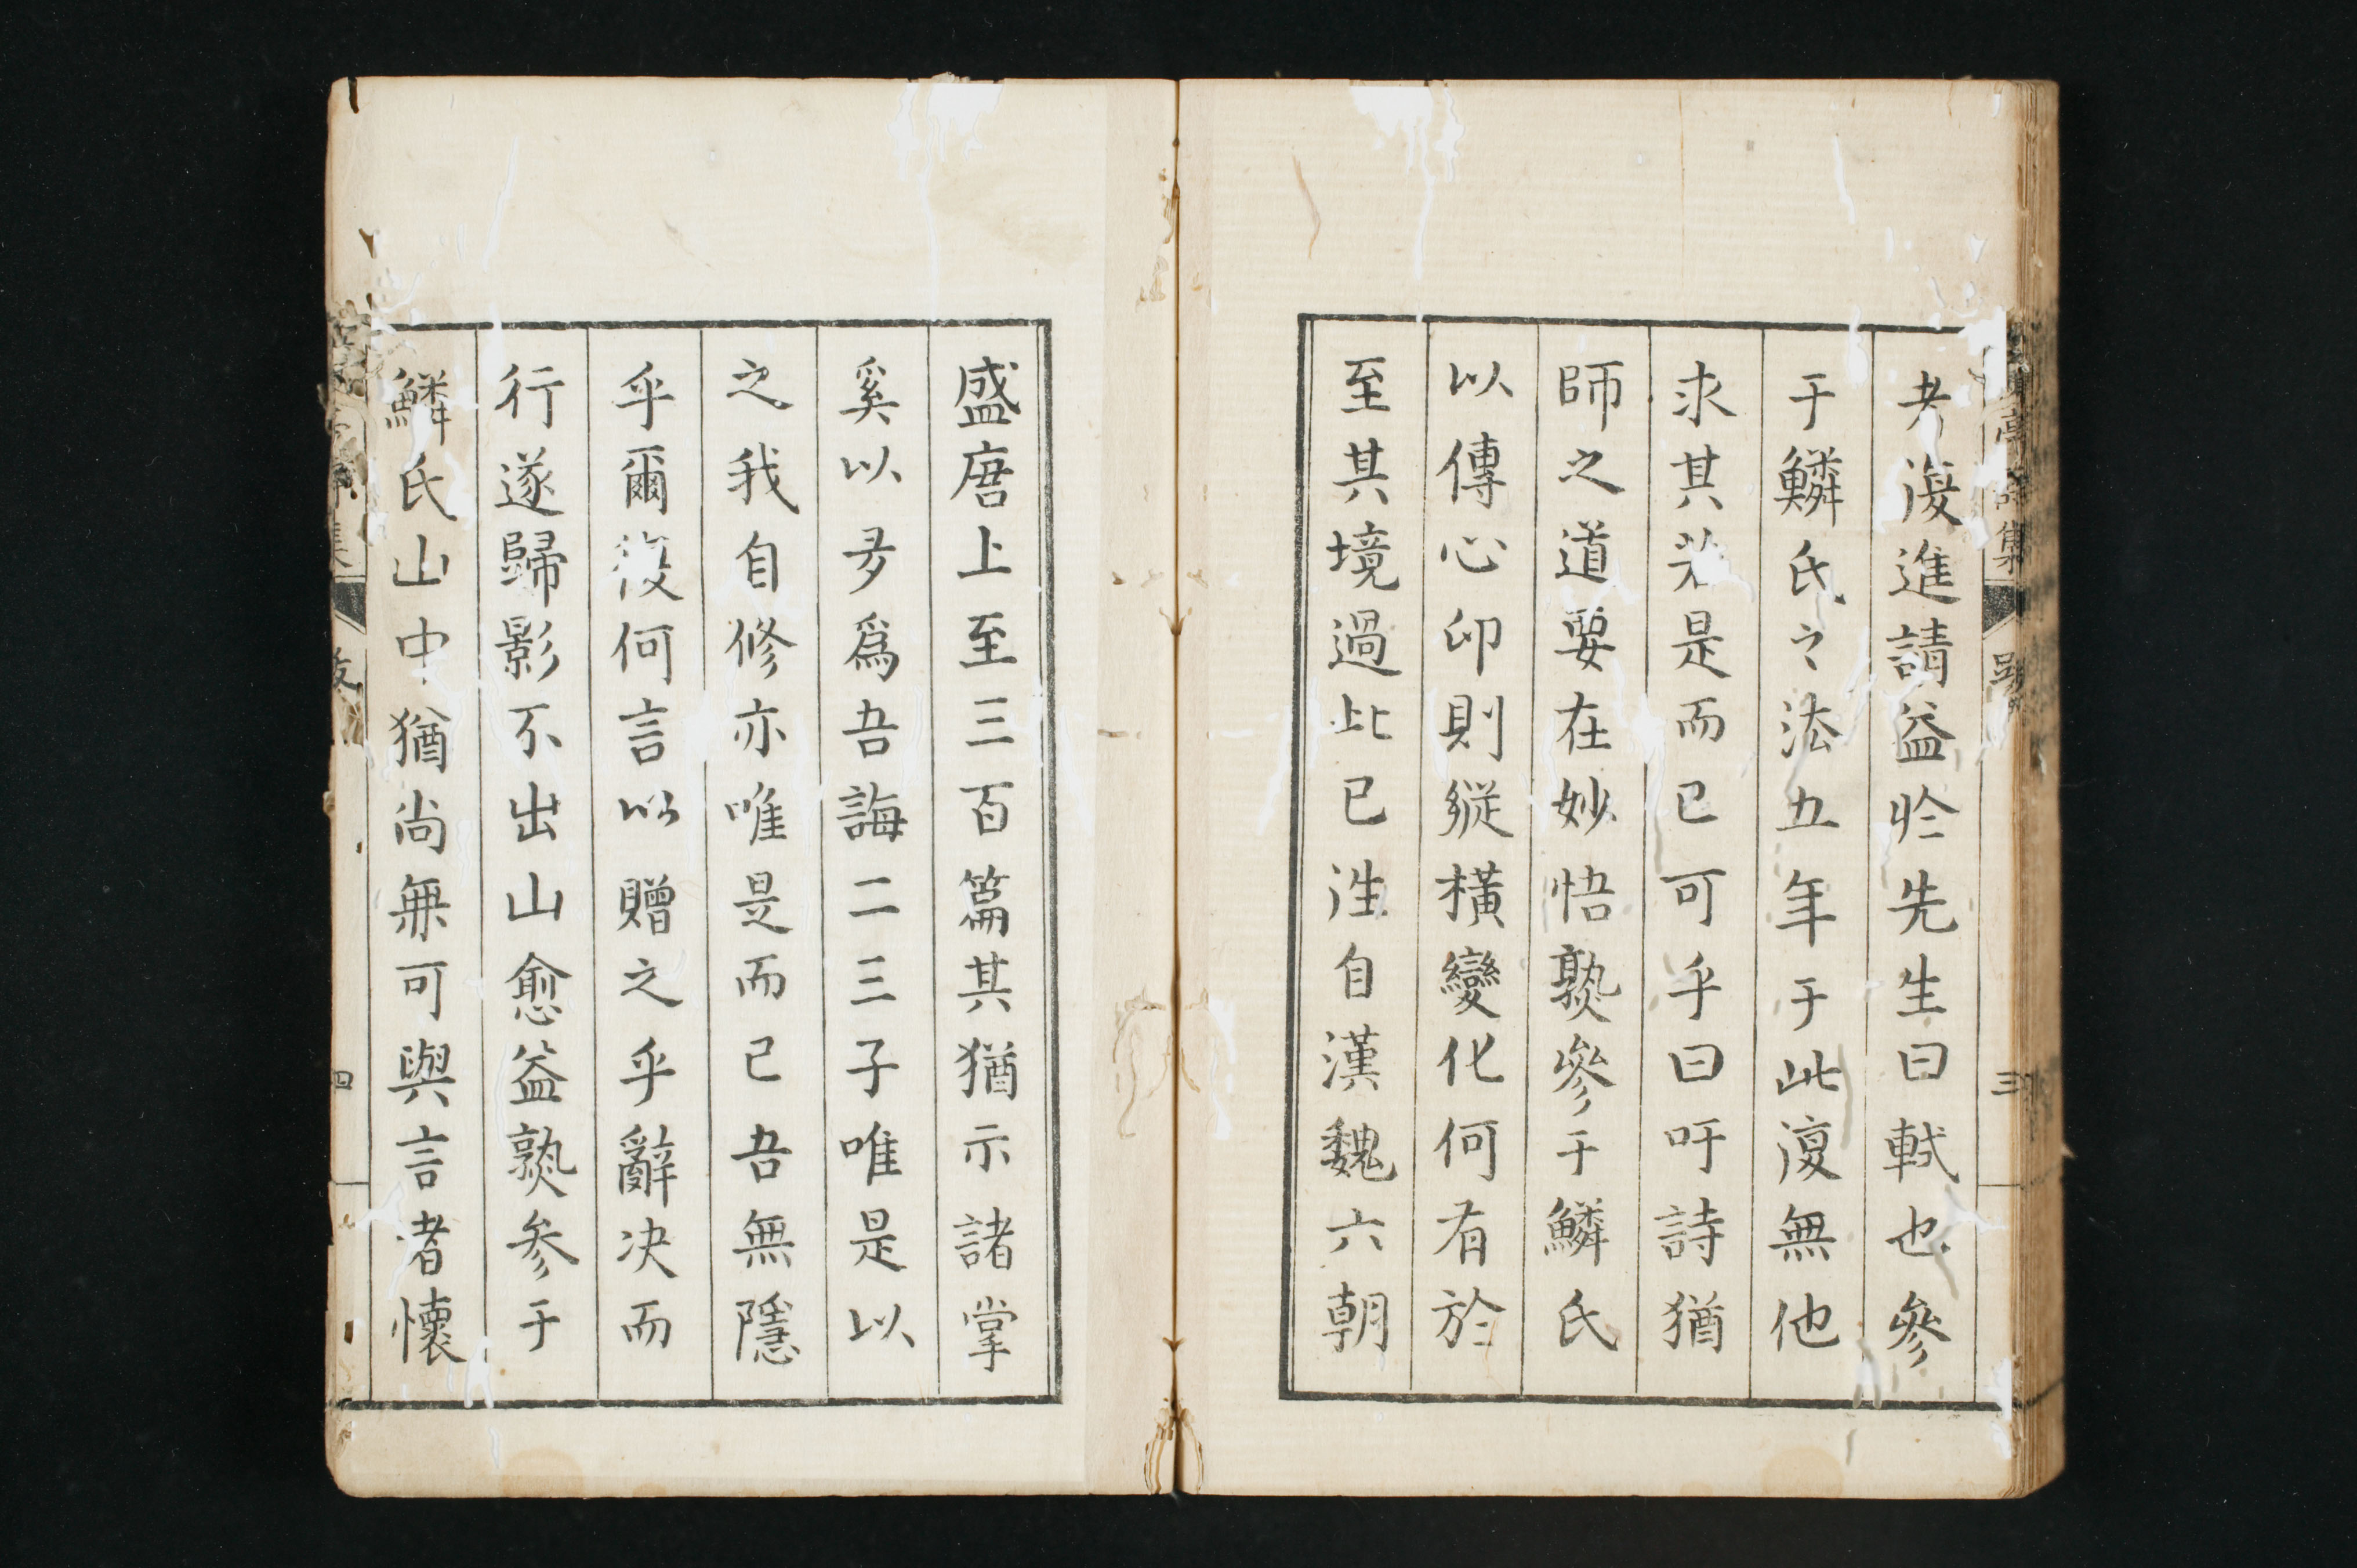 考復進請益於先生曰軾也參
于鱗氏之法五年于此復無他
求其術是而已可乎曰吁詩猶
師之道要在妙悟熟參于鱗氏
以傳心印則縱橫變化何有於
至其境過此已徃自漢魏六朝
盛唐上至三百篇其猶示諸掌
奚以多爲吾誨二三子唯是以
之我自修亦唯是而已吾無隱
乎爾復何言以贈之乎辭决而
行遂歸影不出山愈益熟参于
鱗氏山中猶尚無可與言者懷